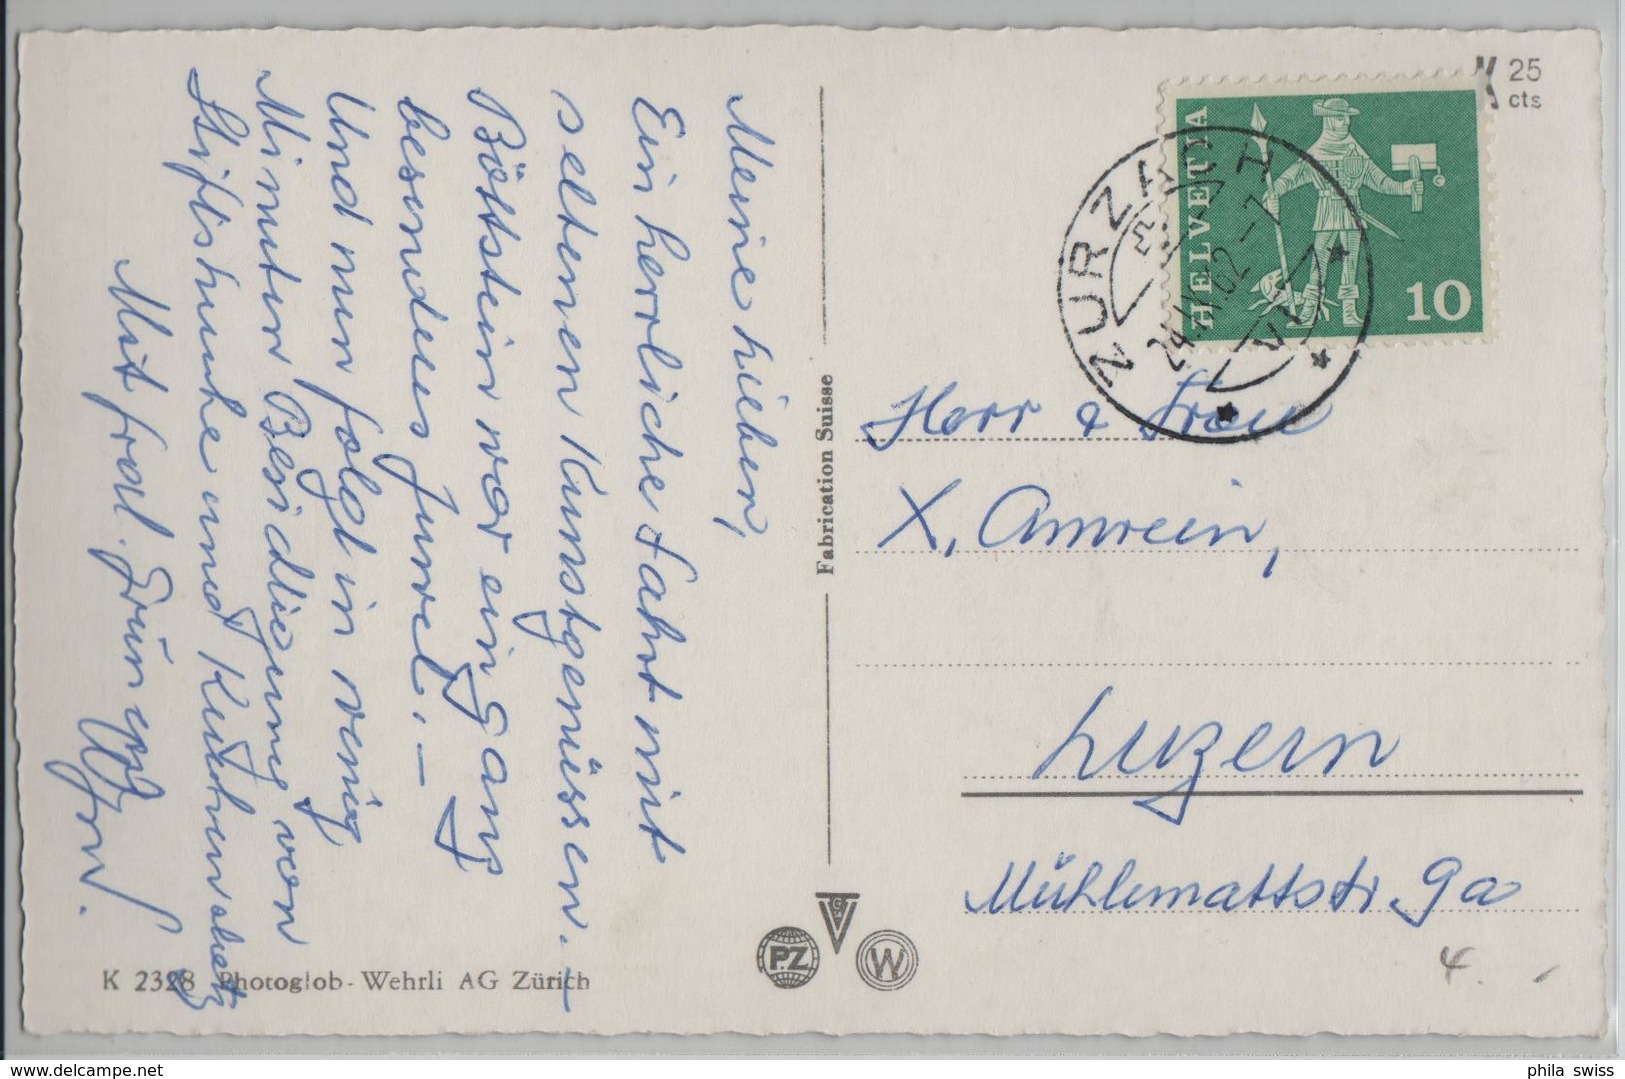 Meine Lieben,
Ein herrliche Fahrt mit
seltenen Kunstgenüssen. –
Böttstein war eingangs
besonderes Juwel. –
Und nun folgt in wenig
Minuten Besichtigung von
Stiftskirche und Kirchenschatz
Mit frdl. Grüssen
K 2328 Photoglob-Wehrli AG Zürich
Fabrication Suisse
PZ
W
K 25
cts
HELVETIA
10
ZURZACH
Herr & Frau
X. Amrein,
Luzern
Mühlemattstr. 9a
4
phila swiss
delcampe.net